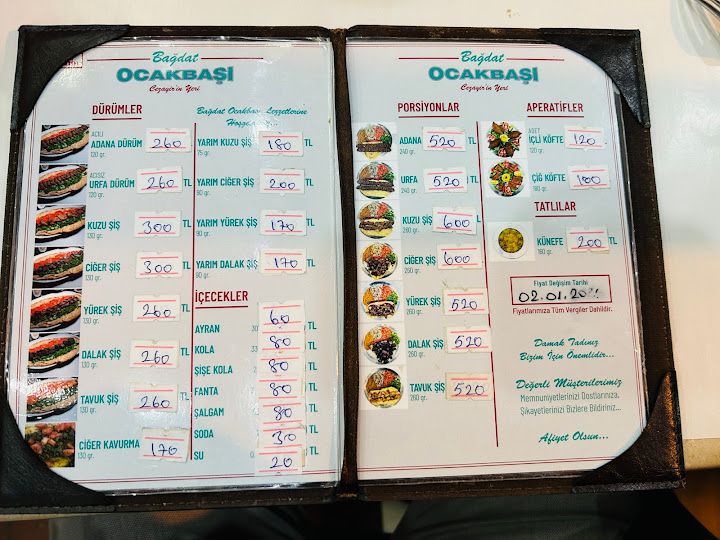 Bağdat
OCAKBAŞI
Cezayir'in Yeri
DÜRÜMLER
Bağdat Ocakbaşı Lezzetlerine
ACILI
ADANA DÜRÜM 260
120 gr.
ACISIZ
URFA DÜRÜM 260
120 gr.
KUZU ŞİŞ 300
130 gr.
CİĞER ŞİŞ 300
130 gr.
YÜREK ŞİŞ 260
130 gr.
DALAK ŞİŞ 260
130 gr.
TAVUK ŞİŞ 260
130 gr.
CİĞER KAVURMA 170
130 gr.
YARIM KUZU ŞİŞ 180 TL
75 gr.
YARIM CİĞER ŞİŞ 200 TL
90 gr.
YARIM YÜREK ŞİŞ 170 TL
90 gr.
YARIM DALAK ŞİŞ 170 TL
90 gr.
İÇECEKLER
AYRAN 60 TL
KOLA 80 TL
ŞİŞE KOLA 80 TL
FANTA 80 TL
ŞALGAM 80 TL
SODA 30 TL
SU 20 TL
Bağdat
OCAKBAŞI
Cezayir'in Yeri
PORSİYONLAR
ADANA 520 TL
240 gr.
URFA 520 TL
240 gr.
KUZU ŞİŞ 600 L
260 gr.
CİĞER ŞİŞ 600
260 gr.
YÜREK ŞİŞ 520
260 gr.
DALAK ŞİŞ 520
260 gr.
TAVUK ŞİŞ 520
260 gr.
APERATİFLER
ADET
İÇLİ KÖFTE 120
120 gr.
ÇİĞ KÖFTE 100
180 gr.
TATLILAR
KÜNEFE 200 TL
160 gr.
Fiyat Değişim Tarihi
02.01.
Fiyatlarımıza Tüm Vergiler Dahildir.
Damak Tadınız
Bizim İçin Önemlidir...
Değerli Müşterilerimiz
Memnuniyetlerinizi Dostlarınıza,
Şikayetlerinizi Bizlere Bildiriniz...
Afiyet Olsun...